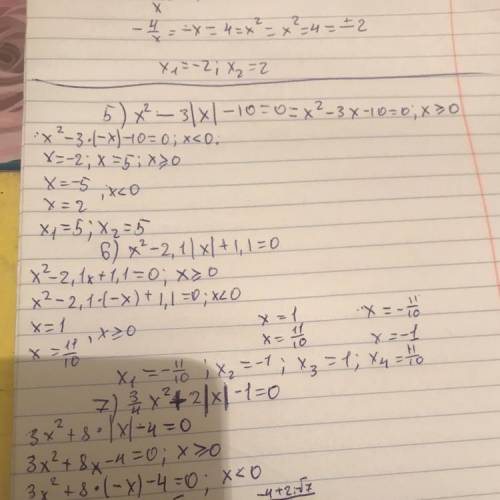 x
-4/x = -x = 4 = x² = x² = 4 = ±2
x₁=-2; x₂=2
5) x² - 3|x| - 10 = 0 = x² - 3x - 10 = 0; x ≥ 0
x² - 3·(-x) - 10 = 0; x < 0.
x = -2; x = 5; x ≥ 0
x = -5
x = 2 , x < 0
x₁ = 5; x₂ = 5
6) x² - 2,1|x| + 1,1 = 0
x² - 2,1x + 1,1 = 0; x ≥ 0
x² - 2,1·(-x) + 1,1 = 0; x < 0
x = 1
x = 11/10 , x ≥ 0
x = 1
x = 11/10
x = -11/10
x = -1
x₁ = -11/10; x₂ = -1; x₃ = 1; x₄ = 11/10
7) 3/4 x² + 2|x| - 1 = 0
3x² + 8·|x| - 4 = 0
3x² + 8x - 4 = 0; x ≥ 0
3x² + 8·(-x) - 4 = 0; x < 0
-4+2·√7